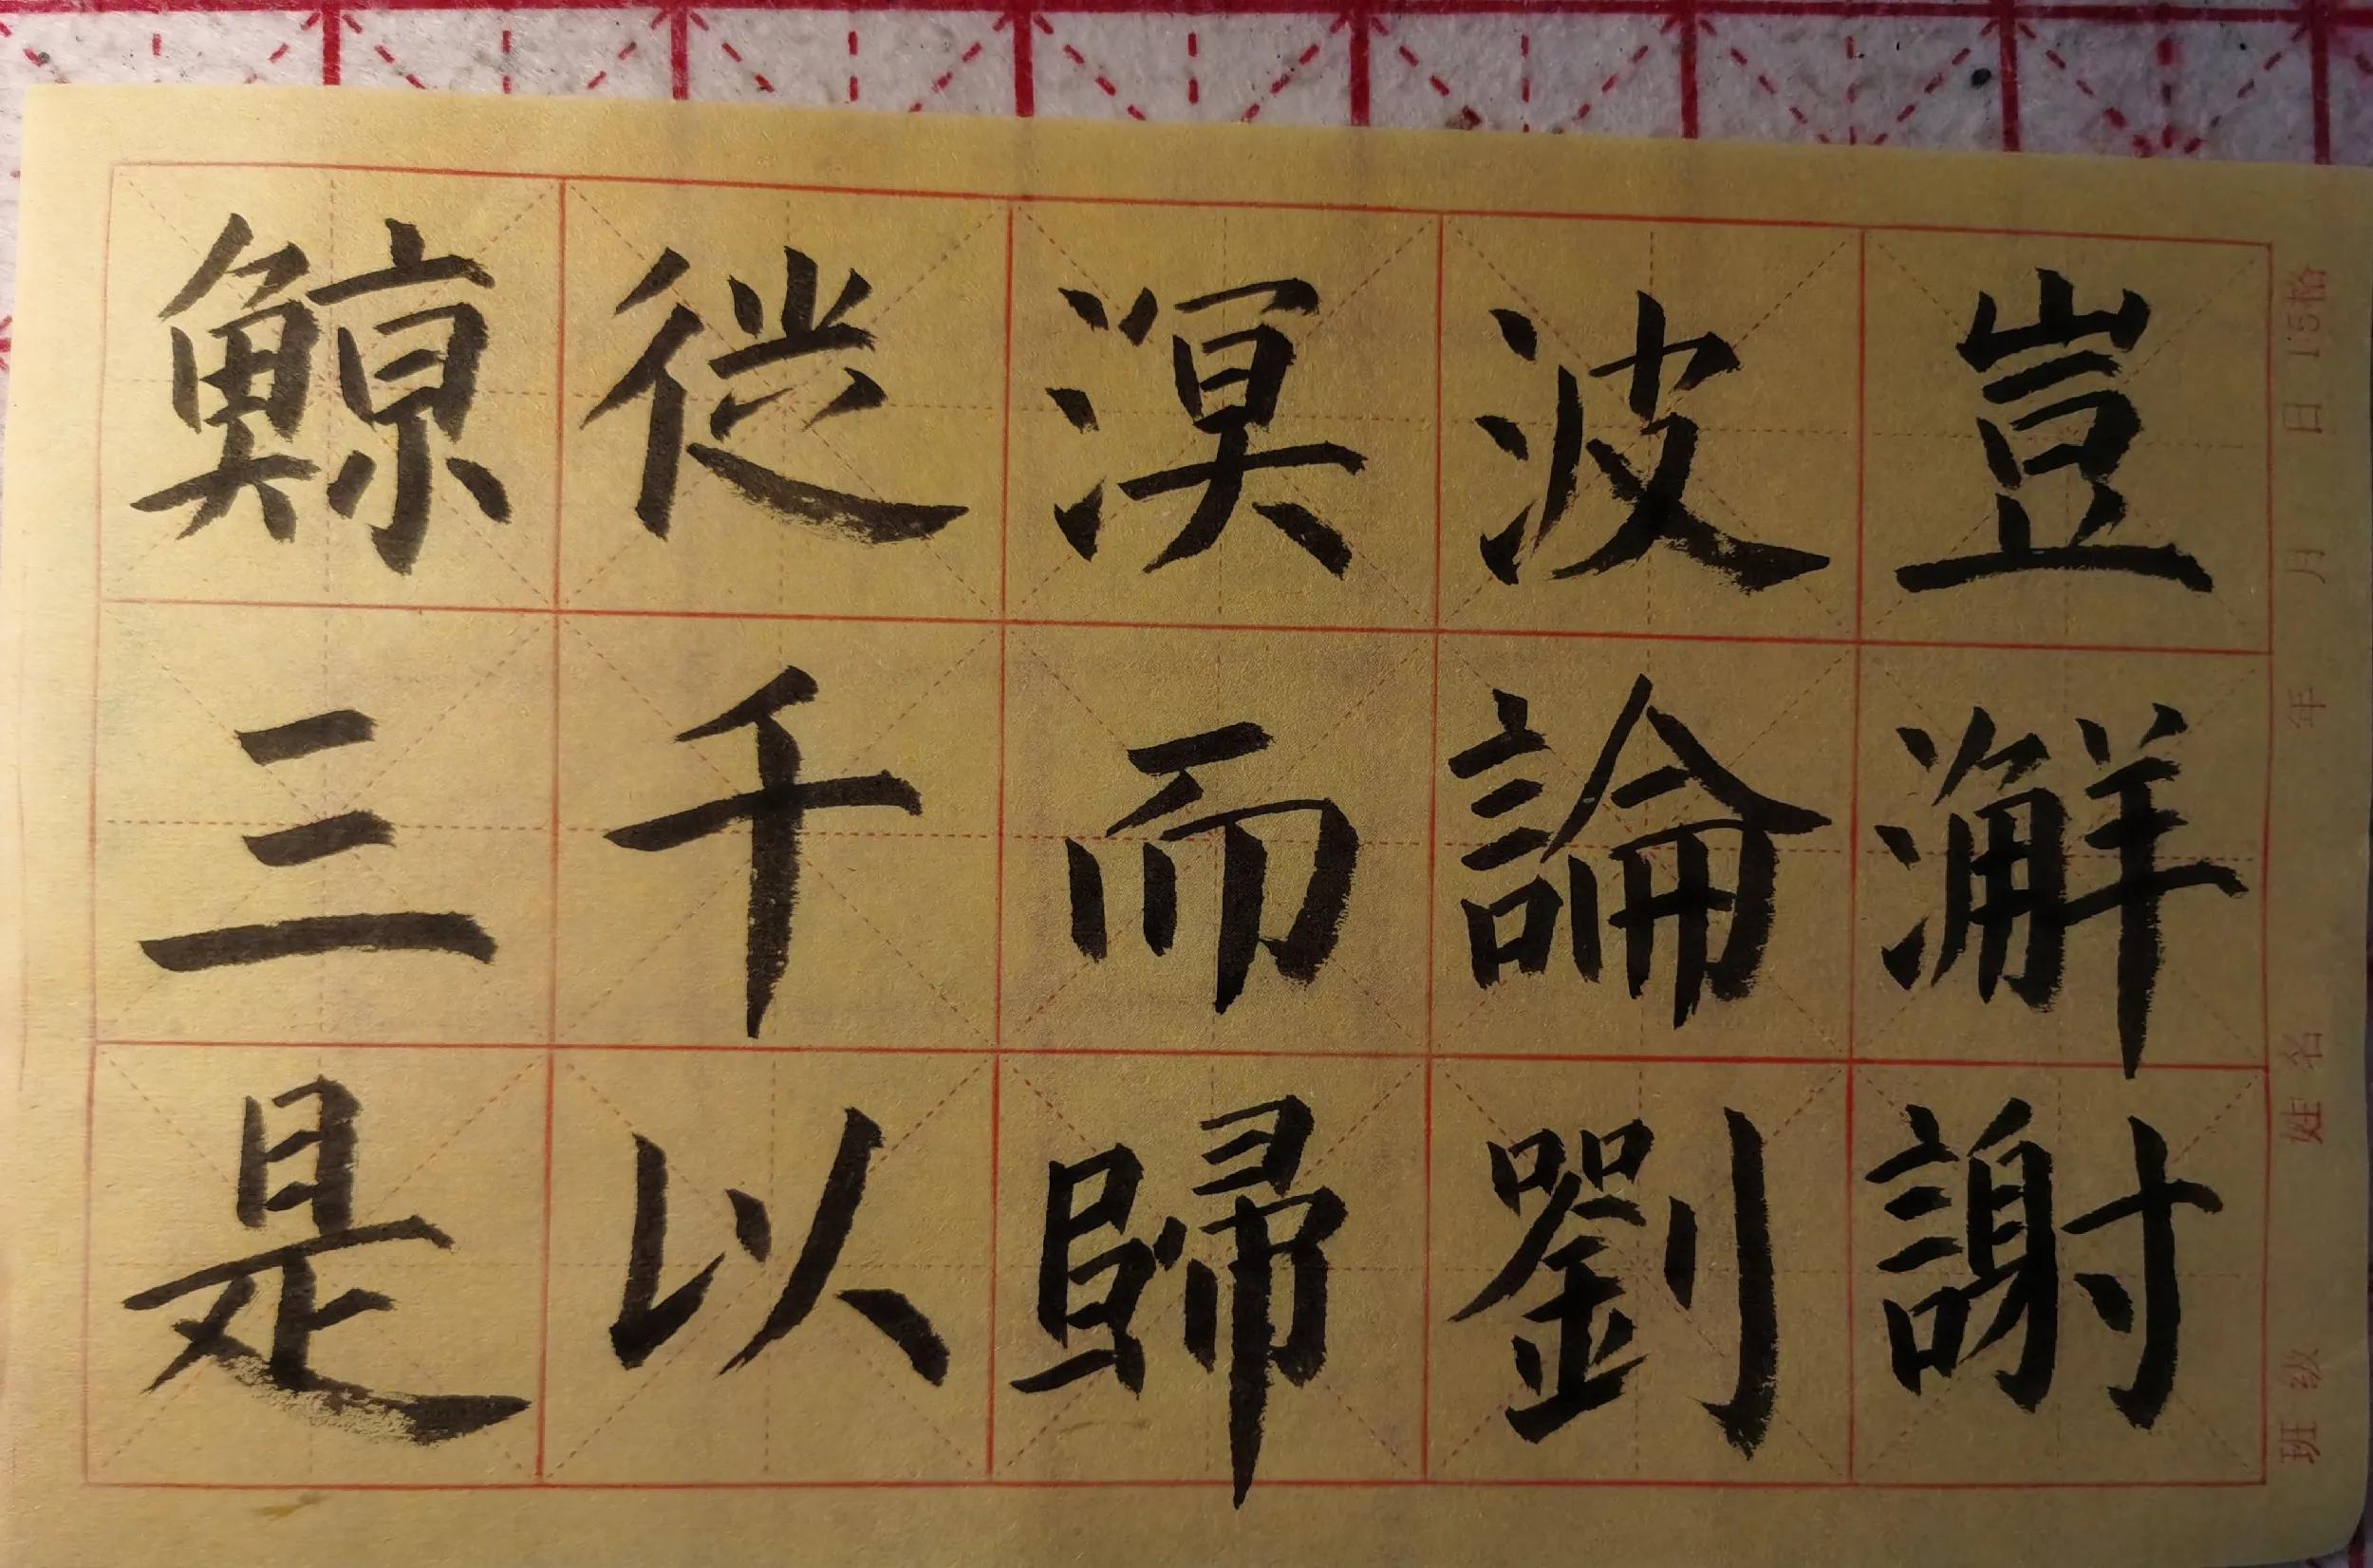 豈澥謝
波論劉
溟而歸
從千以
鯨三是
班级 姓名 年 月 日 15格